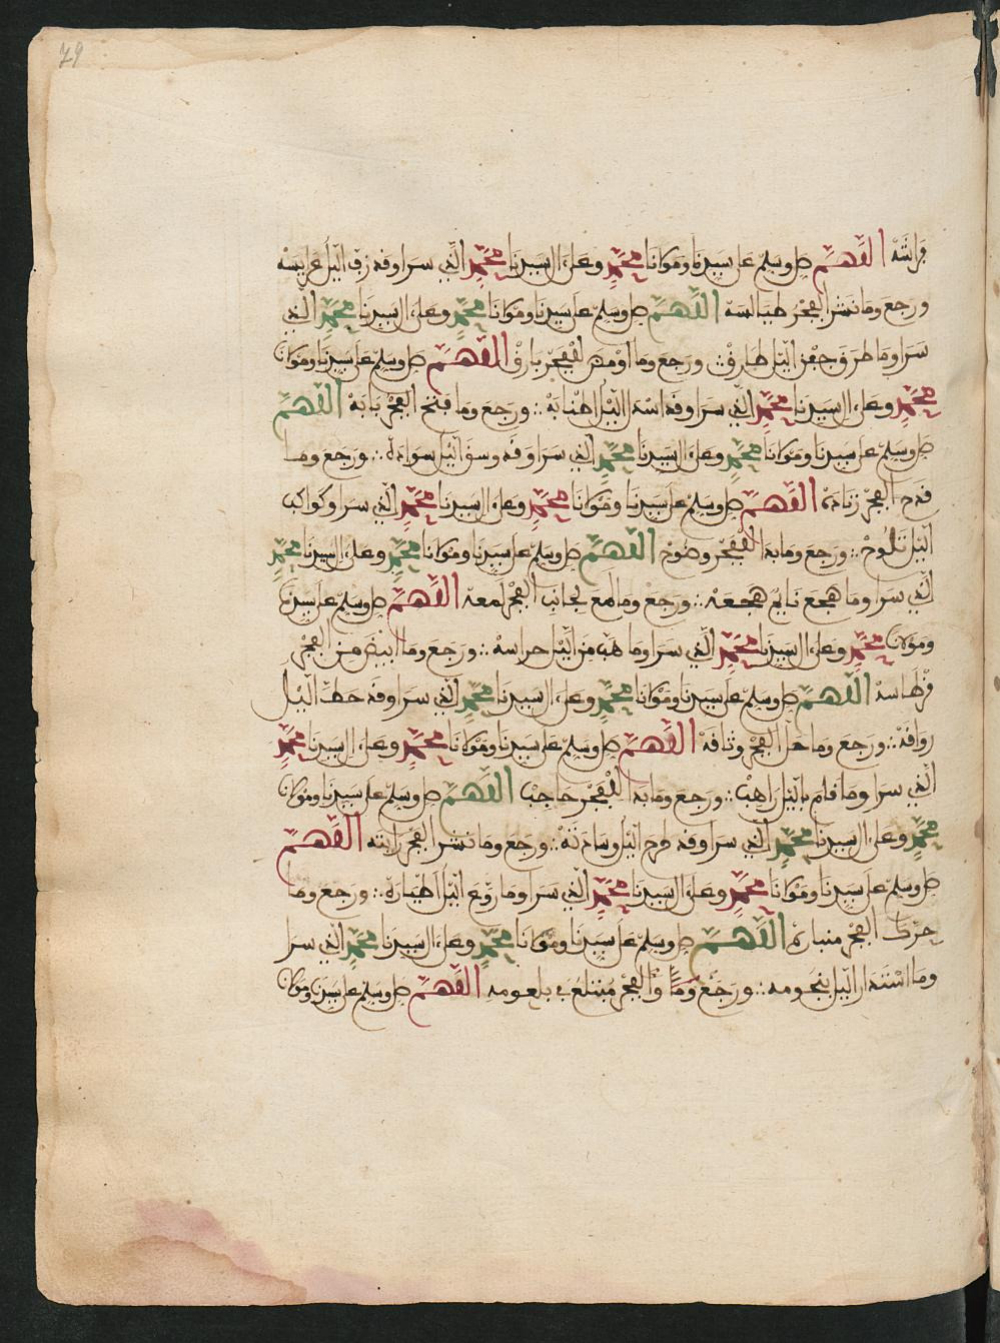 79
فراشه اللهم صل وسلم على سيدنا ومولانا محمد وعلى ءال سيدنا محمد الذي سرا وقد زف اليل عرايسه
ورجع وما نشر الفجر طيالسه اللهم صل وسلم على سيدنا ومولانا محمد وعلى ءال سيدنا محمد الذي
سرا وما طرق جفن اليل طارق ورجع وما اومض للفجر بارق اللهم صل وسلم على سيدنا ومولانا
محمد وعلى ءال سيدنا محمد الذي سرا وقد اسدا اليل اطنابه ورجع وما فتح الفجر بابه اللهم
صل وسلم على سيدنا ومولانا محمد وعلى ءال سيدنا محمد الذي سرا وقد وسق اليل سواده ورجع وما
قدح الفجر زناده اللهم صل وسلم على سيدنا ومولانا محمد وعلى ءال سيدنا محمد الذي سرا وكواكب
اليل تلوح ورجع وما بدا للفجر وضوح اللهم صل وسلم على سيدنا ومولانا محمد وعلى ءال سيدنا محمد
الذي سرا وما هجع نايم هجعه ورجع وما لمع لجانب الفجر لمعه اللهم صل وسلم على سيدنا
ومولانا محمد وعلى ءال سيدنا محمد الذي سرا وما هب من اليل حراسه ورجع وما ابيض من الفجر
قرطاسه اللهم صل وسلم على سيدنا ومولانا محمد وعلى ءال سيدنا محمد الذي سرا وقد حط اليل
رواقه ورجع وما حل الفجر وثاقه اللهم صل وسلم على سيدنا ومولانا محمد وعلى ءال سيدنا محمد
الذي سرا وما قام باليل راهب ورجع وما بدا للفجر حاجب اللهم صل وسلم على سيدنا ومولانا
محمد وعلى ءال سيدنا محمد الذي سرا وقد طرح اليل وسادته ورجع وما نشر الفجر رايته اللهم
صل وسلم على سيدنا ومولانا محمد وعلى ءال سيدنا محمد الذي سرا وما روع اليل اطياره ورجع وما
حرك الفجر منباره اللهم صل وسلم على سيدنا ومولانا محمد وعلى ءال سيدنا محمد الذي سرا
وما استدار اليل بنجومه ورجع وما والفجر مبتلع في بلعومه اللهم صل وسلم على سيدنا ومولانا